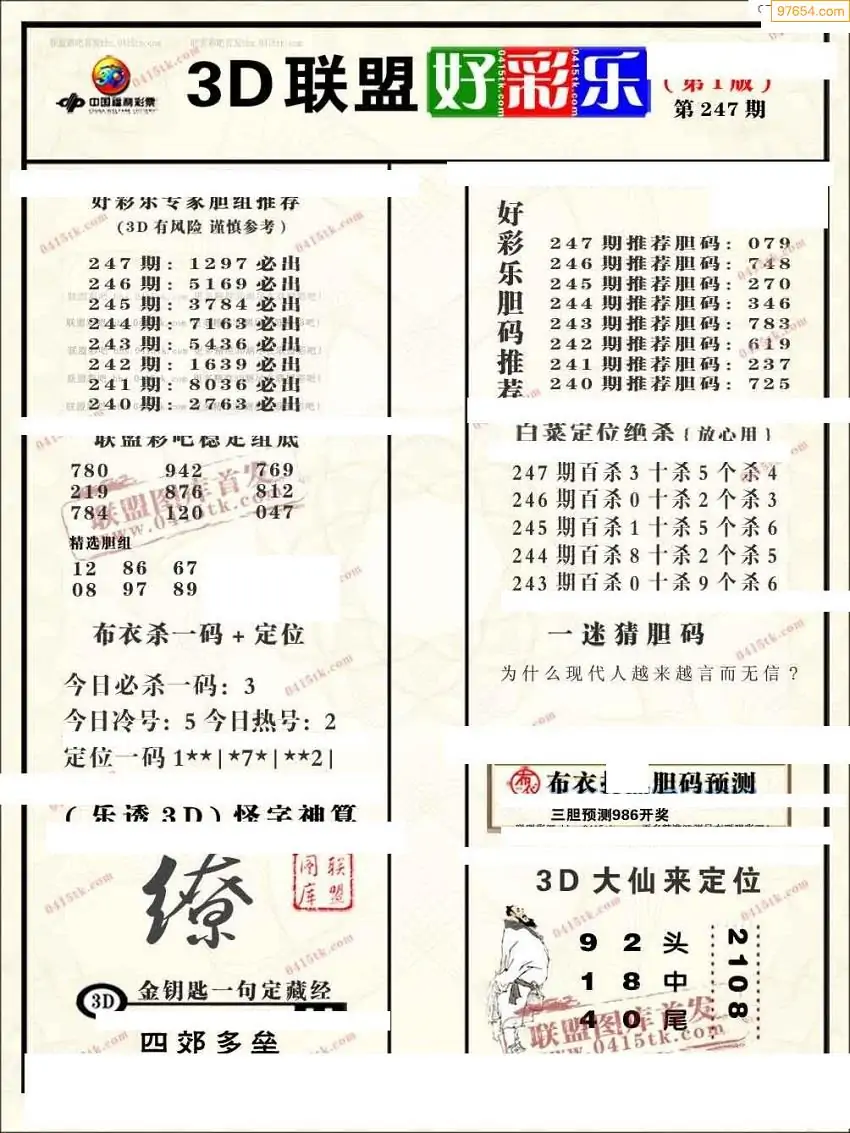 97654.com
联盟彩吧首发bbs.0415tk.com
3D联盟好彩乐
0415tk.com
(第1版)
第247期
中国福利彩票
CHINA WELFARE LOTTERY
好彩乐专家胆组推荐
(3D有风险 谨慎参考)
247期: 1297必出
246期: 5169必出
245期: 3784必出
244期: 7163必出
243期: 5436必出
242期: 1639必出
241期: 8036必出
240期: 2763必出
联盟彩吧稳定组底
780 942 769
219 876 812
784 120 047
联盟图库首发
www.0415tk.com
精选胆组
12 86 67
08 97 89
布衣杀一码+定位
今日必杀一码: 3
今日冷号: 5 今日热号: 2
定位一码1**|*7*|**2|
(乐透3D)怪字神算
缭
联盟图库
3D 金钥匙一句定藏经
四郊多垒
好彩乐胆码推荐
247期推荐胆码: 079
246期推荐胆码: 748
245期推荐胆码: 270
244期推荐胆码: 346
243期推荐胆码: 783
242期推荐胆码: 619
241期推荐胆码: 237
240期推荐胆码: 725
白菜定位绝杀{放心用}
247期百杀3十杀5个杀4
246期百杀0十杀2个杀3
245期百杀1十杀5个杀6
244期百杀8十杀2个杀5
243期百杀0十杀9个杀6
一迷猜胆码
为什么现代人越来越言而无信?
布衣 胆码预测
三胆预测986开奖
3D大仙来定位
9 2 头
1 8 中
4 0 尾
2108
联盟图库首发
www.0415tk.com